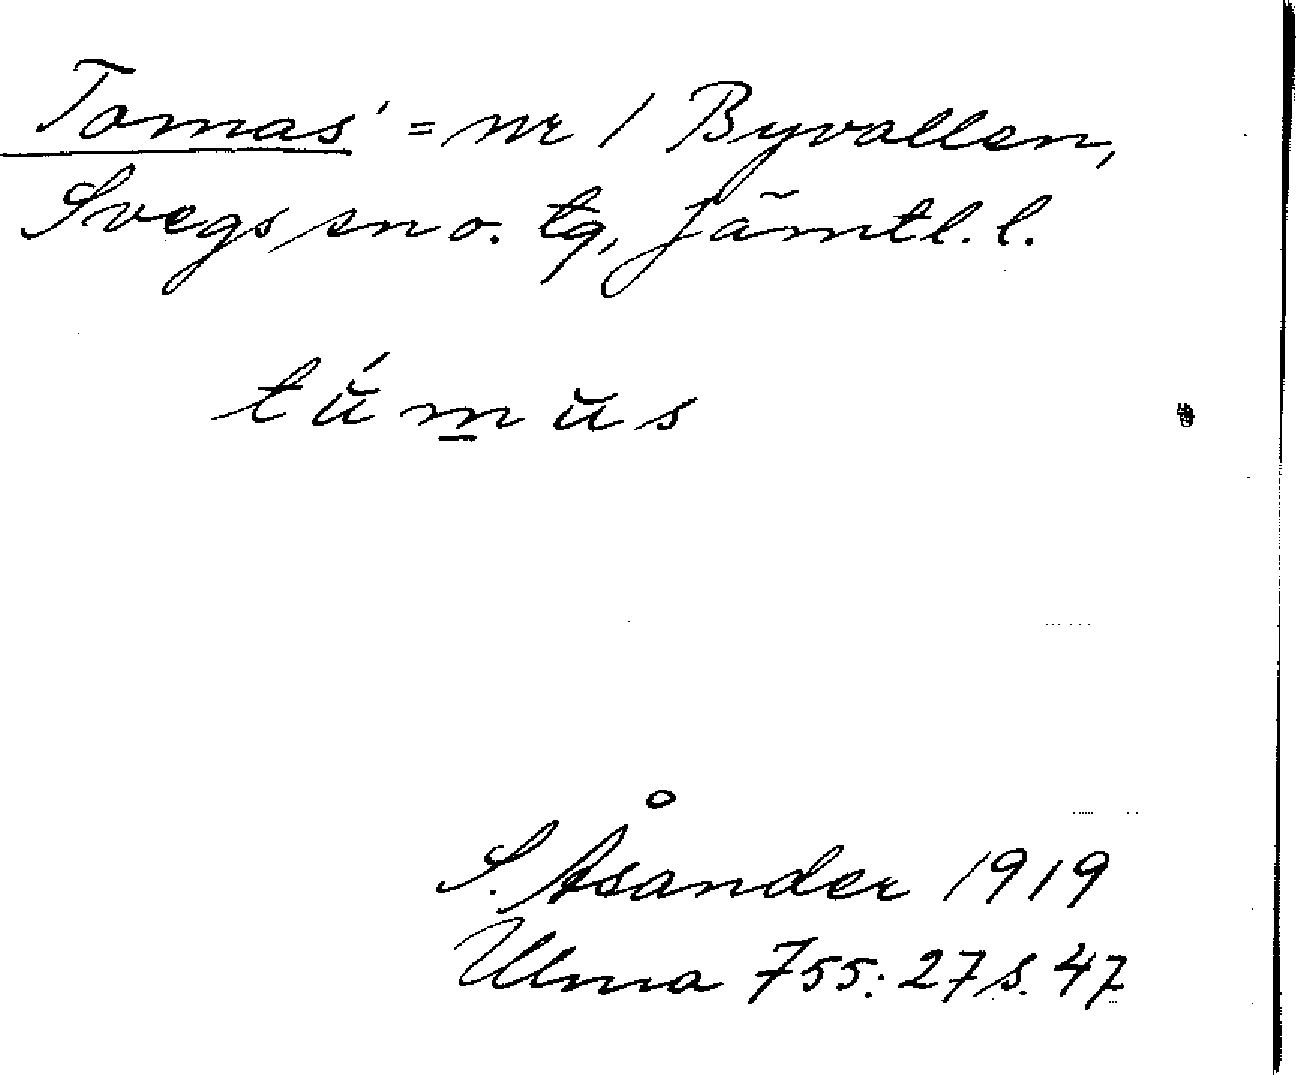 Tomas' = nr 1 Byvallen,
Svegs sn o. tg, Jämtl. l.
tú̆m̲ŭs
S. Åsander 1919
Ulma 755:27 s. 47